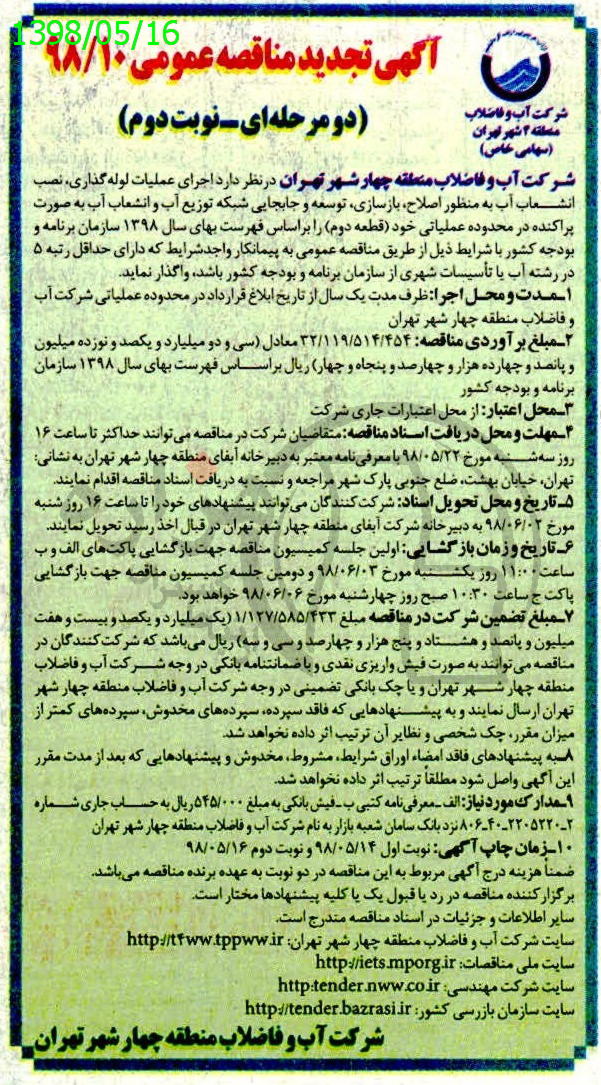 1398/05/16
آگهی تجدید مناقصه عمومی ۹۸/۱۰
(دو مرحله‌ای ـ نوبت دوم)
شرکت آب و فاضلاب
منطقه ۴ شهر تهران
(سهامی خاص)
شرکت آب و فاضلاب منطقه چهار شهر تهران در نظر دارد اجرای عملیات لوله گذاری، نصب
انشعاب آب به منظور اصلاح، بازسازی، توسعه و جابجایی شبکه توزیع آب و انشعاب آب به صورت
پراکنده در محدوده عملیاتی خود (قطعه دوم) را براساس فهرست بهای سال ۱۳۹۸ سازمان برنامه و
بودجه کشور با شرایط ذیل از طریق مناقصه عمومی به پیمانکار واجدشرایط که دارای حداقل رتبه ۵
در رشته آب یا تأسیسات شهری از سازمان برنامه و بودجه کشور باشد، واگذار نماید.
۱ـ مدت و محل اجرا: ظرف مدت یک سال از تاریخ ابلاغ قرارداد در محدوده عملیاتی شرکت آب
و فاضلاب منطقه چهار شهر تهران
۲ـ مبلغ برآوردی مناقصه: ۳۲/۱۱۹/۵۱۴/۴۵۴ معادل (سی و دو میلیارد و یکصد و نوزده میلیون
و پانصد و چهارده هزار و چهارصد و پنجاه و چهار) ریال براساس فهرست بهای سال ۱۳۹۸ سازمان
برنامه و بودجه کشور
۳ـ محل اعتبار: از محل اعتبارات جاری شرکت
۴ـ مهلت و محل دریافت اسناد مناقصه: متقاضیان شرکت در مناقصه می‌توانند حداکثر تا ساعت ۱۶
روز سه‌شنبه مورخ ۹۸/۰۵/۲۲ با معرفی‌نامه معتبر به دبیرخانه آبفای منطقه چهار شهر تهران به نشانی:
تهران، خیابان بهشت، ضلع جنوبی پارک شهر مراجعه و نسبت به دریافت اسناد مناقصه اقدام نمایند.
۵ـ تاریخ و محل تحویل اسناد: شرکت‌کنندگان می‌توانند پیشنهادهای خود را تا ساعت ۱۶ روز شنبه
مورخ ۹۸/۰۶/۰۲ به دبیرخانه شرکت آبفای منطقه چهار شهر تهران در قبال اخذ رسید تحویل نمایند.
۶ـ تاریخ و زمان بازگشایی: اولین جلسه کمیسیون مناقصه جهت بازگشایی پاکت‌های الف و ب
ساعت ۱۱:۰۰ روز یکشنبه مورخ ۹۸/۰۶/۰۳ و دومین جلسه کمیسیون مناقصه جهت بازگشایی
پاکت ج ساعت ۱۰:۳۰ صبح روز چهارشنبه مورخ ۹۸/۰۶/۰۶ خواهد بود.
۷ـ مبلغ تضمین شرکت در مناقصه مبلغ ۱/۱۲۷/۵۸۵/۴۳۳ (یک میلیارد و یکصد و بیست و هفت
میلیون و پانصد و هشتاد و پنج هزار و چهارصد و سی و سه) ریال می‌باشد که شرکت‌کنندگان در
مناقصه می‌توانند به صورت فیش واریزی نقدی و یا ضمانتنامه بانکی در وجه شرکت آب و فاضلاب
منطقه چهار شهر تهران و یا چک بانکی تضمینی در وجه شرکت آب و فاضلاب منطقه چهار شهر
تهران ارسال نمایند و به پیشنهادهایی که فاقد سپرده، سپرده‌های مخدوش، سپرده‌های کمتر از
میزان مقرر، چک شخصی و نظایر آن ترتیب اثر داده نخواهد شد.
۸ـ به پیشنهادهای فاقد امضاء اوراق شرایط، مشروط، مخدوش و پیشنهادهایی که بعد از مدت مقرر
این آگهی واصل شود مطلقاً ترتیب اثر داده نخواهد شد.
۹ـ مدارک مورد نیاز: الف ـ معرفی‌نامه کتبی ب ـ فیش بانکی به مبلغ ۵۴۵/۰۰۰ ریال به حساب جاری شماره
۲ـ۲۲۰۵۲۲۰ـ۴۰ـ۸۰۶ نزد بانک سامان شعبه بازار به نام شرکت آب و فاضلاب منطقه چهار شهر تهران
۱۰ـ زمان چاپ آگهی: نوبت اول ۹۸/۰۵/۱۴ و نوبت دوم ۹۸/۰۵/۱۶
ضمناً هزینه درج آگهی مربوط به این مناقصه در دو نوبت به عهده برنده مناقصه می‌باشد.
برگزارکننده مناقصه در رد یا قبول یک یا کلیه پیشنهادها مختار است.
سایر اطلاعات و جزئیات در اسناد مناقصه مندرج است.
سایت شرکت آب و فاضلاب منطقه چهار شهر تهران: http://t4ww.tppww.ir
سایت ملی مناقصات: http://iets.mporg.ir
سایت شرکت مهندسی: http:tender.nww.co.ir
سایت سازمان بازرسی کشور: http://tender.bazrasi.ir
شرکت آب و فاضلاب منطقه چهار شهر تهران